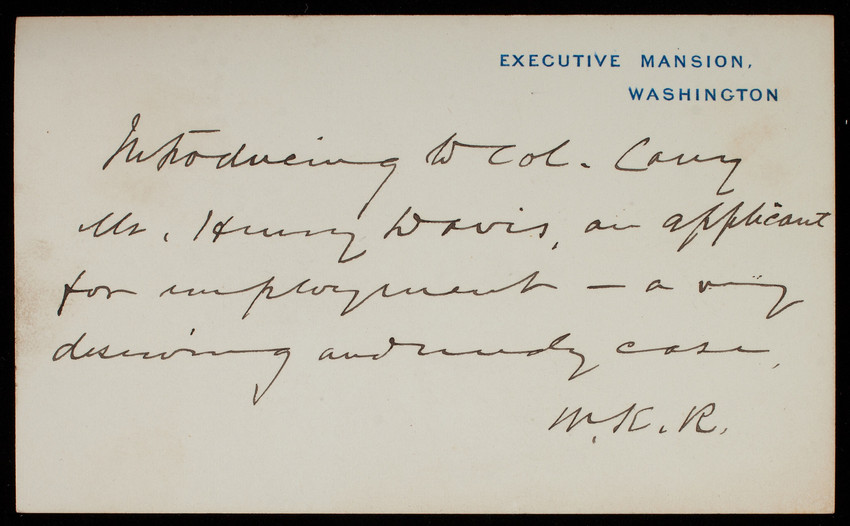 EXECUTIVE MANSION,
WASHINGTON
Introducing to Col. Casey
Mr. Henry Davis, an applicant
for employment – a very
deserving and needy case.
W.K.R.